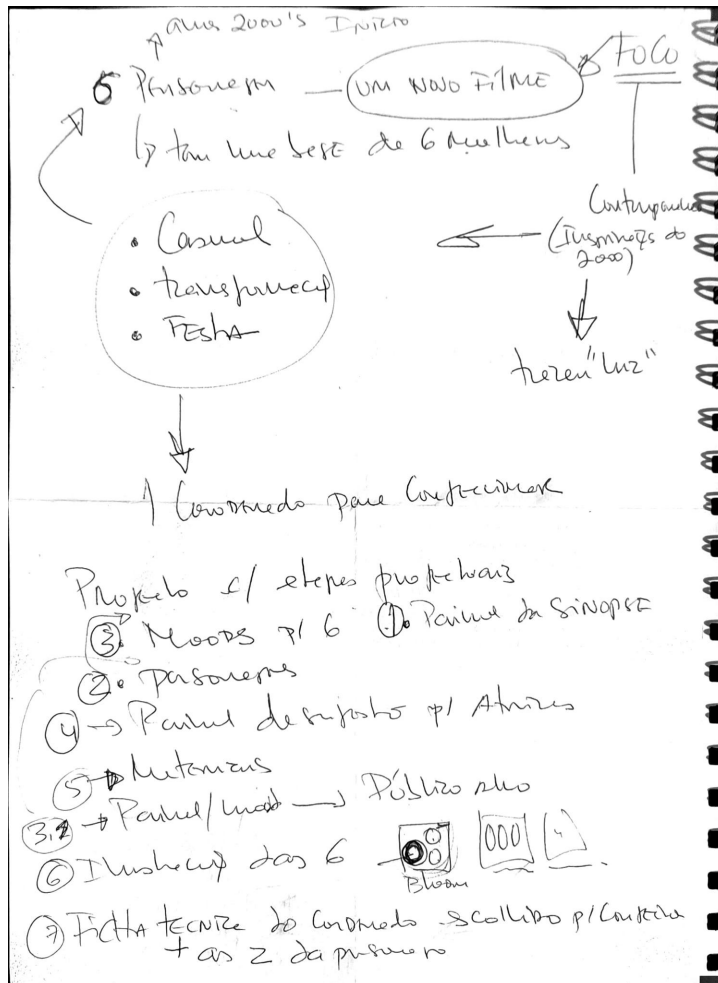 anos 2000's Início
6 Personagem — UM NOVO FILME
FOCO
↳ tem uma base de 6 mulheres
Contemporânea
(Inspiração do
2000)
• Casual
• transformação
• FESTA
trazer "luz"
1 Coordenado para Confeccionar
Projeto c/ etapas projetuais
3. Moods p/ 6 1. Painel da SINOPSE
2. personagens
4 → Painel de p/ Atrizes
5 → Materiais
3.1 → Painel/mood → Público Alvo
6 Ilustração das 6
Bloom
000
7 FICHA TECNICA do Coordenado escolhido p/
+ as 2 da